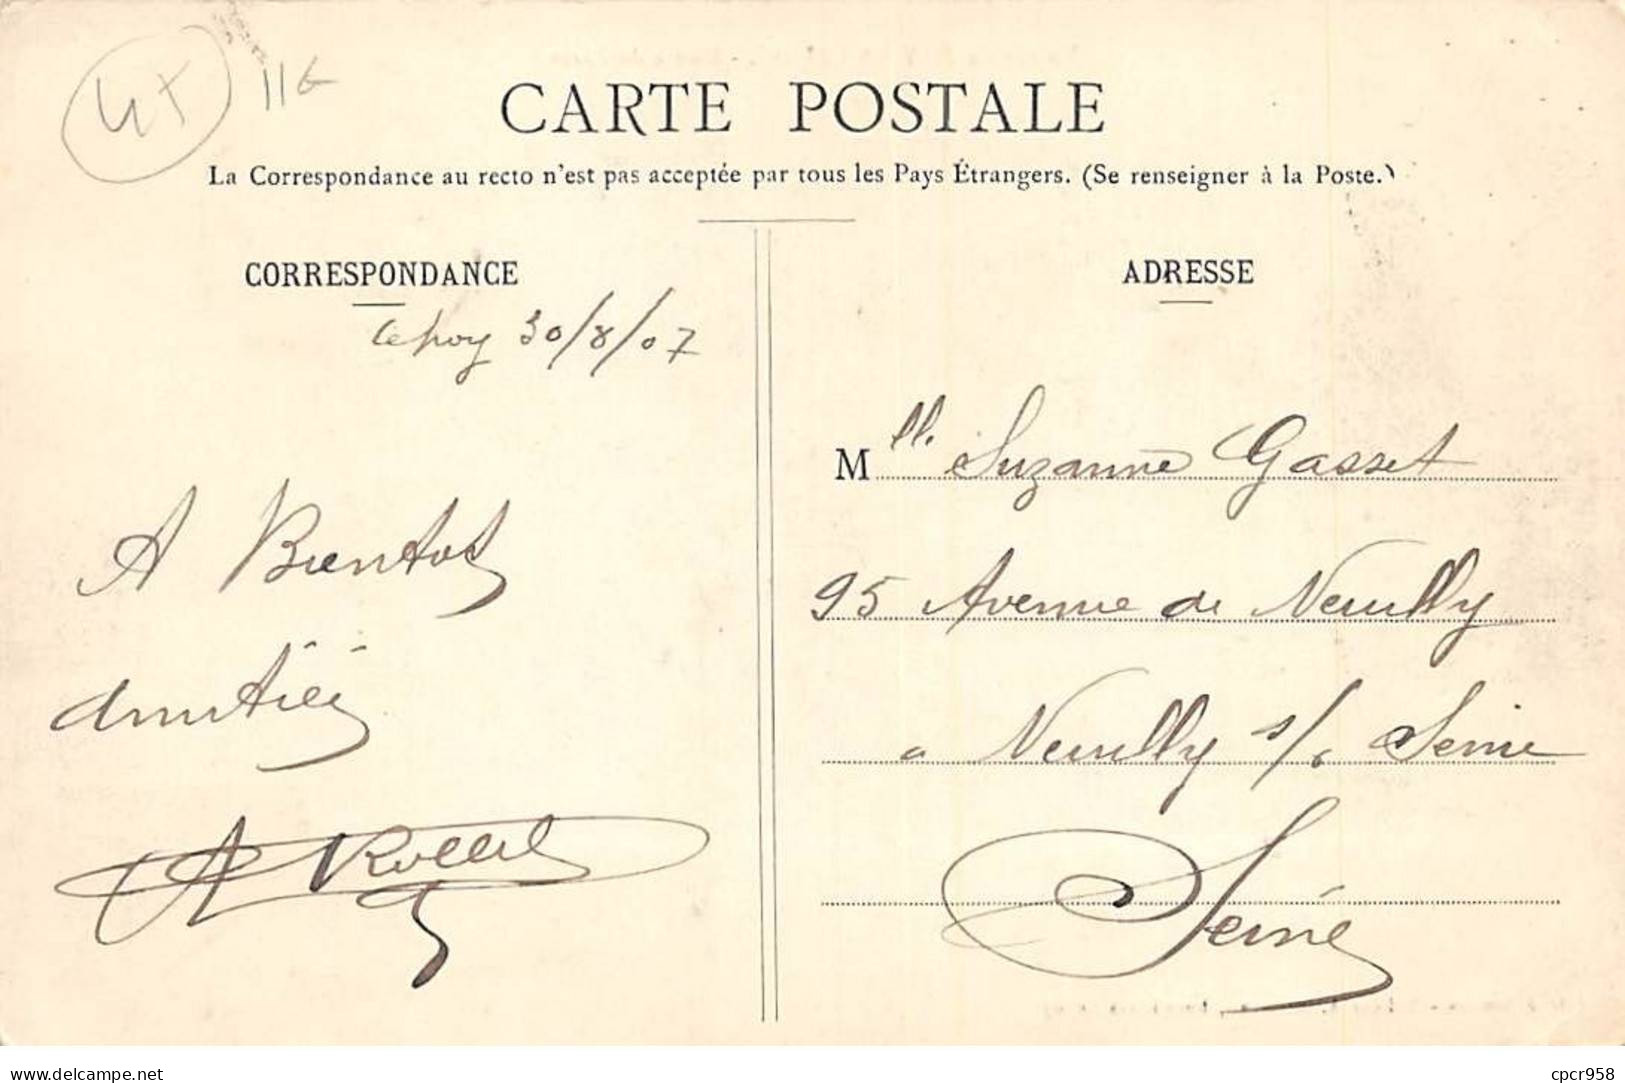 11€
CARTE POSTALE
La Correspondance au recto n'est pas acceptée par tous les Pays Étrangers. (Se renseigner à la Poste.)
CORRESPONDANCE
30/8/07
A Bientot
Amitiés
ADRESSE
Mlle. Suzanne Gasset
95 Avenue de Neuilly
a Neuilly s/s Seine
Seine
www.delcampe.net
cpcr958